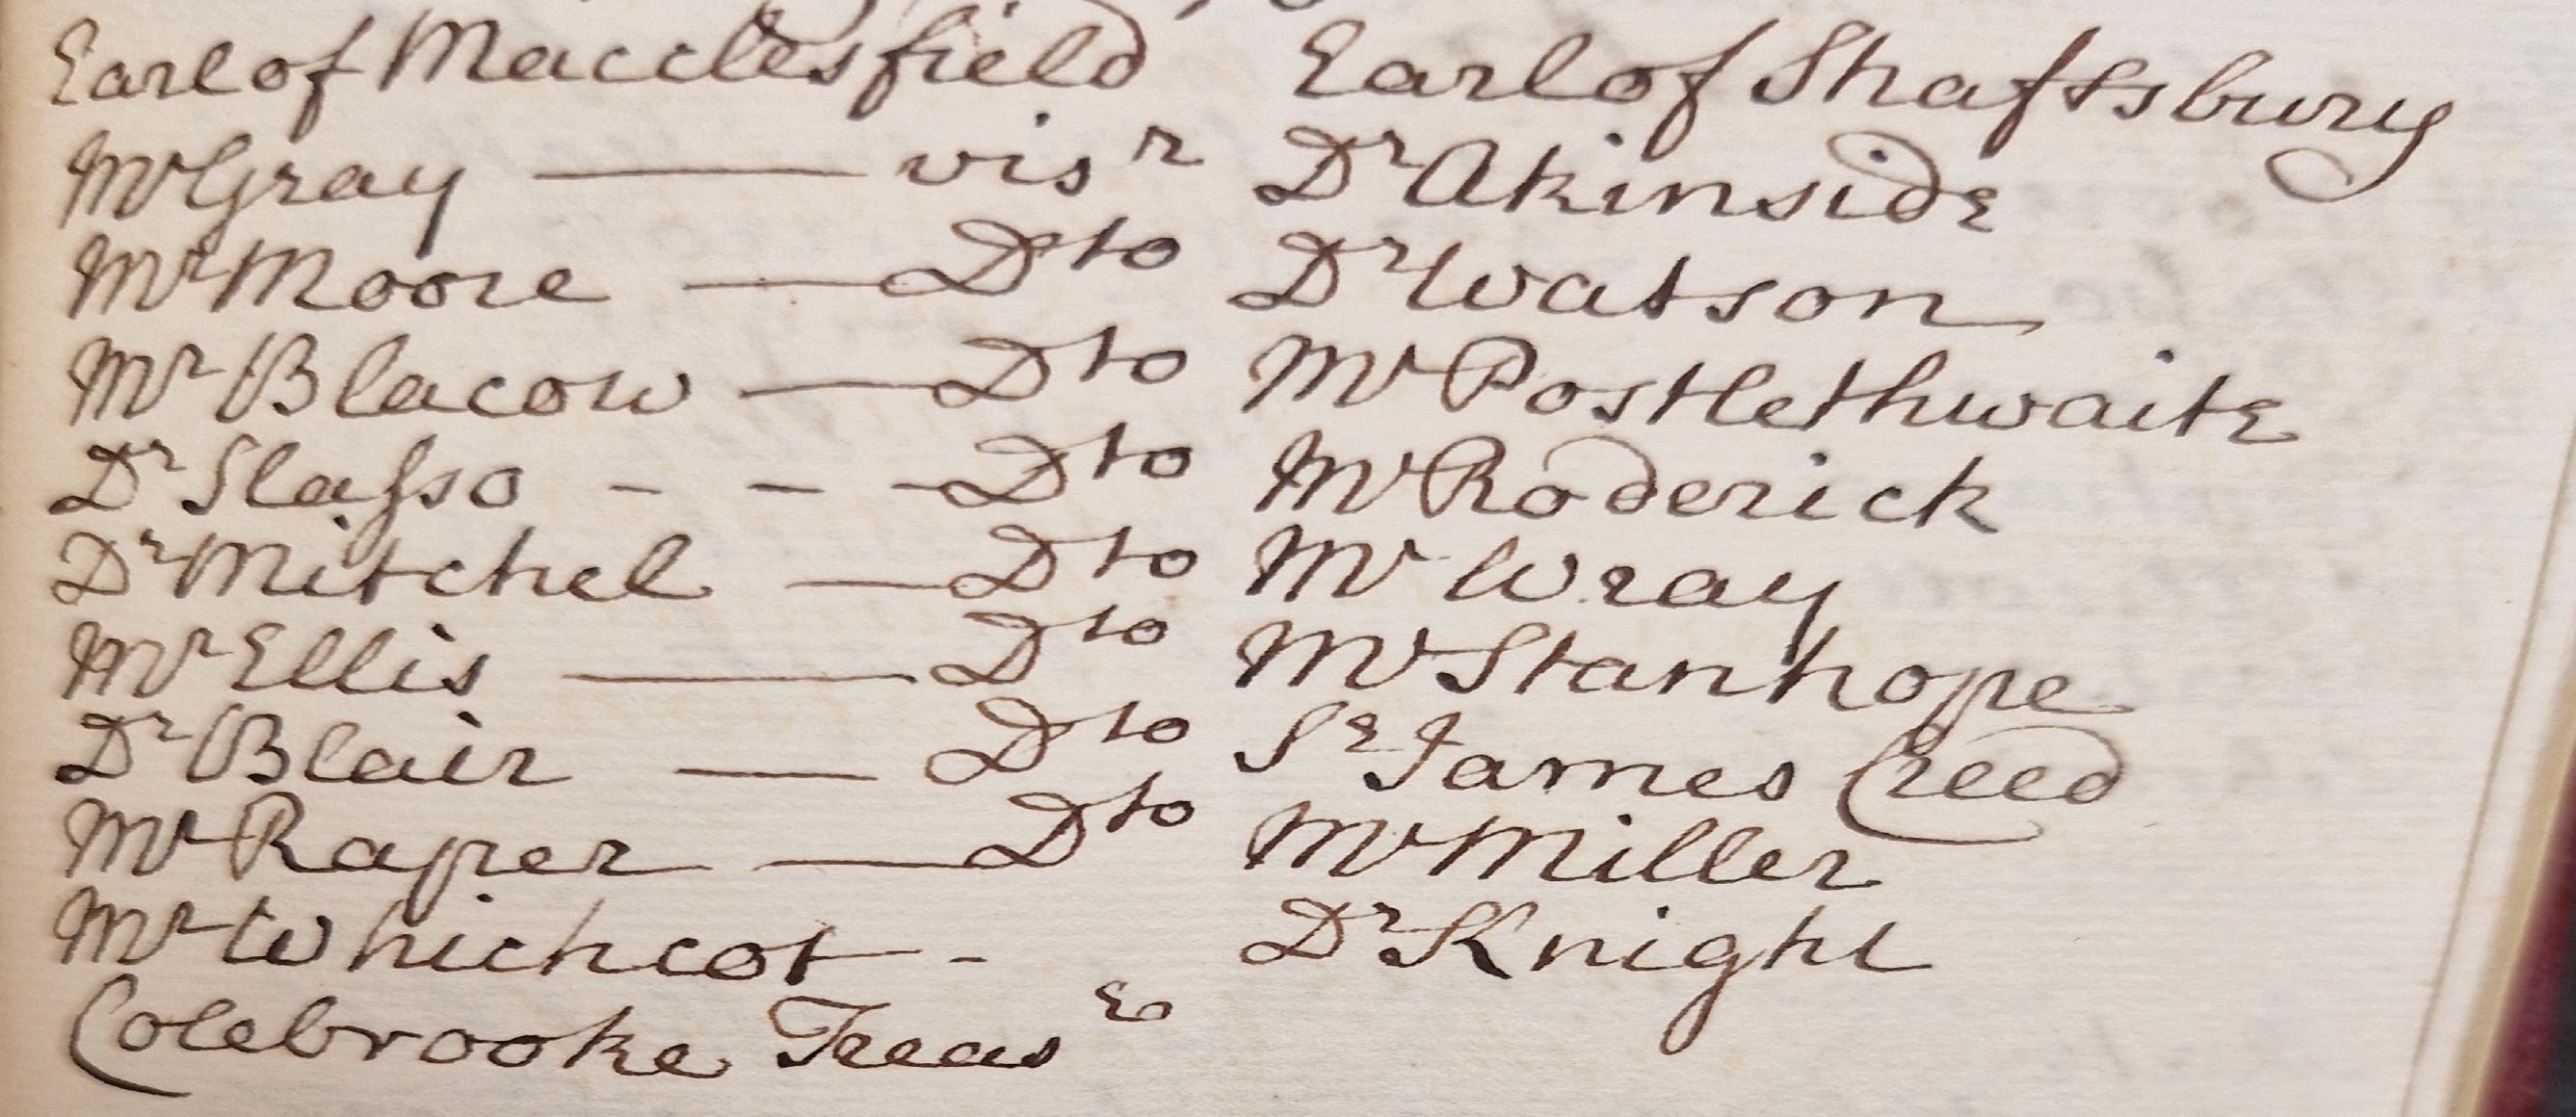 Earl of Macclesfield Earl of Shaftsbury
Mr Gray — visr Dr Akinside
Mr Moore — Dto Dr Watson
Mr Blacow — Dto Mr Postlethwaite
Dr Slasso - - - Dto Mr Roderick
Dr Mitchel — Dto Mr Wray
Mr Ellis — Dto Mr Stanhope
Dr Blair — Dto Sr James Creed
Mr Raper — Dto Mr Miller
Mr Whichcot - Dr Knight
Colebrooke Treasr